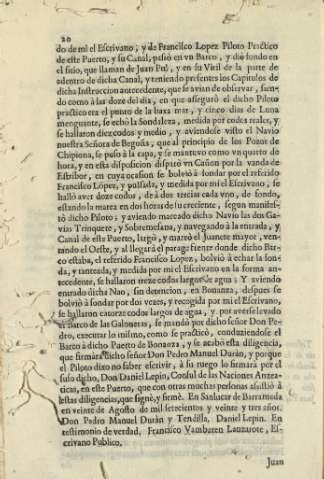 20
do de mi el Escrivano; y de Francisco Lopez Piloto Practico
de este Puerto, y su Canal, pasò en vn Barco, y diò fondo en
el sitio, que llaman de Juan Pul, y en su Viril de la parte de
adentro de dicha Canal, y teniendo presentes los Capitulos de
dicha Instruccion antecedente, que se avian de observar, sien-
do como à las doze del dia, en que assegurò el dicho Piloto
practico era el punto de la baxa mar, y cinco dias de Luna
menguante, se echò la Sondaleza, medida por codos reales, y
se hallaron diez codos y medio, y aviendose visto el Navio
nuestra Señora de Begoña, que al principio de los Pozos de
Chipiona, se puso à la capa, y se mantuvo como vn quarto de
hora, y en esta disposicion disparò vn Cañon por la vanda de
Estribor, en cuya ocasion se bolviò à sondar por el referido
Francisco Lòpez, y pulsada, y medida por mi el Escrivano, se
hallò aver doze codos, de à dos tercias cada vno, de fondo,
estando la marea en dos horas de su creciente, segun manifes-
tò dicho Piloto; y aviendo mareado dicho Navio las dos Ga-
vias Trinquete, y Sobremesana, y navegando à la entrada, y
Canal de este Puerto, largò, y mareò el Juanete mayor, ven-
tando el Oeste, y al llegar à el parage frente donde dicho Bar-
co estaba, el referido Francisco Lopez, bolviò à echar la son-
da, y tanteada, y medida por mi el Escrivano en la forma an-
tecedente, se hallaron treze codos largos de agua; Y aviendo
entrado dicha Nao, sin detencion, en Bonanza, despues se
bolviò à sondar por dos vezes, y recogida por mi el Escrivano,
se hallaron catorze codos largos de agua, y por averse levado
el Barco de las Galeones, se mandò por dicho señor Don Pe-
dro, executar lo mismo, como se practicò, conduziendose el
Barco à dicho Puerto de Bonanza, y se acabò esta diligencia,
que firmarà dicho Señor Don Pedro Manuel Duràn, y porque
el Piloto dixo no saber escrivir, à su ruego lo firmarà por el
suso dicho, Don Daniel Lepin, Consul de las Naciones Anzea-
ticas, en este Puerto, que con otras muchas personas assistiò à
estas diligencias, que signè, y firmè. En Sanlucar de Barrameda
en veinte de Agosto de mil setecientos y veinte y tres años.
Don Pedro Manuel Duràn y Tendilla. Daniel Lepin. En
testimonio de verdad, Francisco Vambaren Lanzarote, Es-
crivano Publico.
Juan